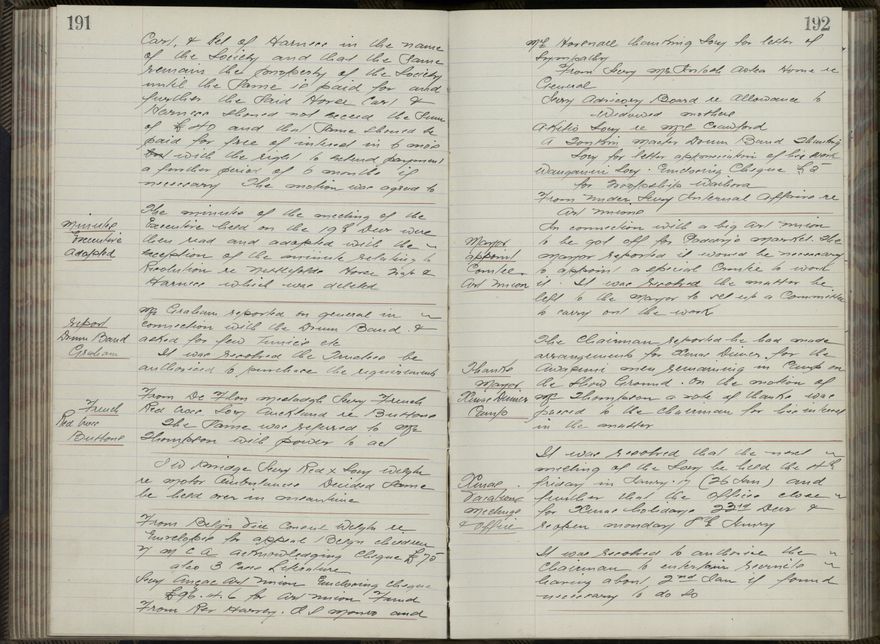 191
Cart, & Set of Harness in the name
of the Society and that the same
remain the property of the Society
until the same is paid for and
further the said Horse Cart &
Harness should not exceed the sum
of £40 and that same should be
paid for free of interest in 6 mos
with the right to extend payment
a further period of 6 months if
necessary The motion was agreed to
Minutes
Executive
adopted
The minutes of the meeting of the
Executive held on the 19th Decr were
then read and adopted with the
exception of the minute relating to
Resolution re Horse &
Harness which was deleted
report
Drum Band
Graham
Mr Graham reported on general in
connection with the Drum Band &
asked for few Tunics etc
It was resolved the Trustees be
authorised to purchase the requirements
French
Red Cross
Buttons
From De Secy French
Red Cross Socy Auckland re Buttons
The same was referred to Mr
Thompson with power to act
Secy Red X Socy Welgtn
re motor Ambulances Decided same
be held over in meantime
From Belgn Vice Consul Welgtn re
Envelopes for appeal Belgn children
Y M C A acknowledging Cheque £75
also 3 Cases Literature
Secy Art Union Enclosing cheque
£96.4.6 for Art Union Fund
From Rev Harvey. A S Monro and
192
thanking Socy for letter of
Sympathy
From Secy Home re
General
Secy Advisory Board re Allowance to
Widowed mothers
Socy re Crawford
A Master Drum Band Thanking
Socy for letter appreciation of his work
Wanganui Socy. Enclosing Cheque £5
for
From Under Secy Internal Affairs re
Art Unions
Mayor
appoint
Comtee
Art Union
In connection with a big Art Union
to be got off for market. The
mayor reported it would be necessary
to appoint a special Comtee to work
it. It was resolved the matter be
left to the Mayor to set up a Committee
to carry out the work
Thanks
Mayor
Xmas Dinner
Camp
The Chairman reported he had made
arrangements for Xmas Dinner for the
men remaining in Camp on
the Show Ground. On the motion of
Mr Thompson a vote of thanks was
passed to the Chairman for his interest
in the matter
Xmas
Vacations
Meetings
& Office
It was resolved that the next
meeting of the Socy be held the 4th
Friday in Janry. 17 (26 Jan) and
further that the offices close
for Xmas holidays 23rd Decr &
reopen monday 8th Janry
It was resolved to authorise the
Chairman to entertain recruits
leaving about 2nd Jan if found
necessary to do so